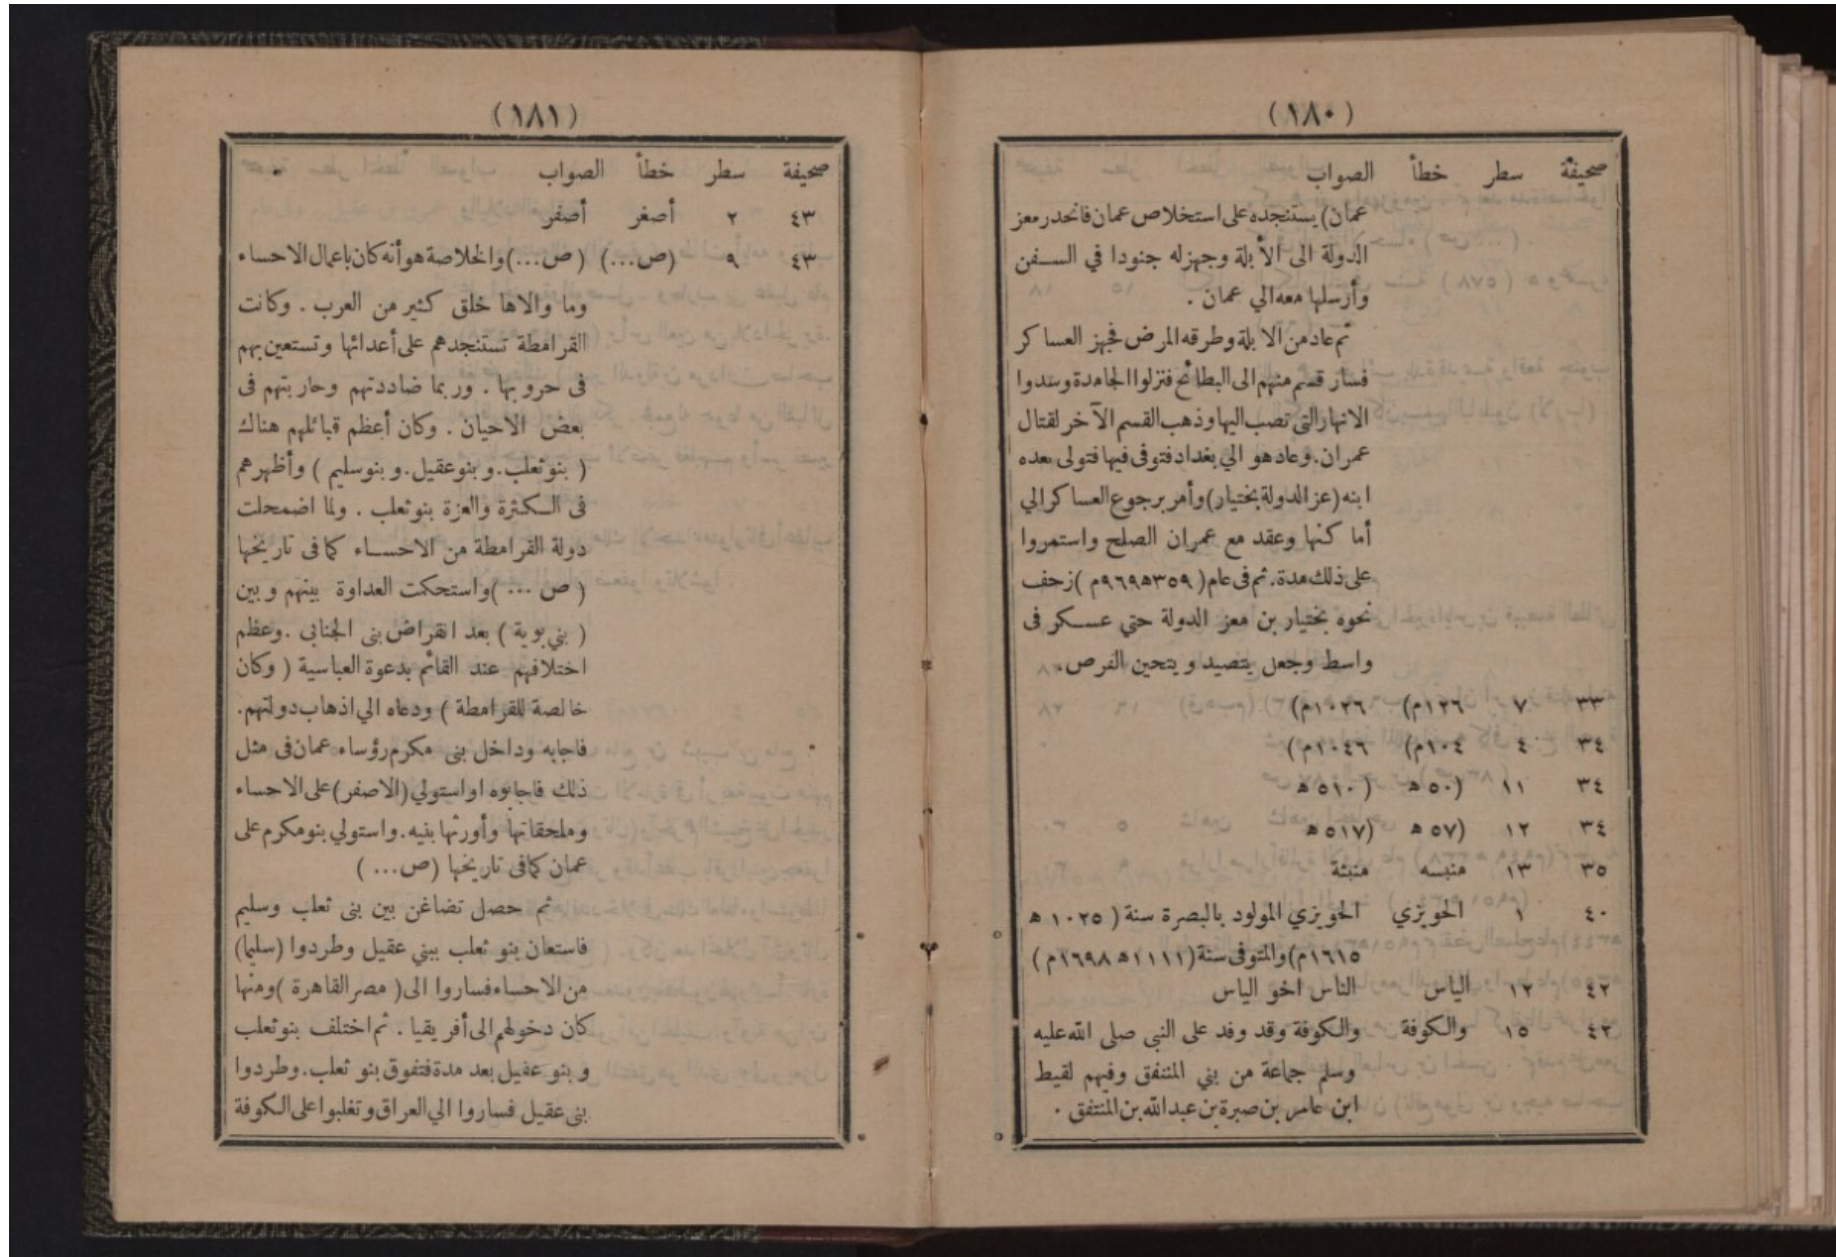 (١٨٠)
صحيفة سطر خطأ الصواب
عمان) يستنجده على استخلاص عمان فانحدر معز
الدولة الى الأبلة وجهز له جنودا في السفن
وأرسلها معه الي عمان .
ثم عاد من الابلة وطرقه المرض فجهز العساكر
فسار قسم منهم الى البطائح فنزلوا الجامدة وسدوا
الانهار التى تصب اليها وذهب القسم الآخر لقتال
عمران . وعاد هو الي بغداد فتوفى فيها فتولى بعده
ابنه (عز الدولة بختيار) وأمر برجوع العساكر الي
أماكنها وعقد مع عمران الصلح واستمروا
على ذلك مدة . ثم فى عام (٣٥٩ه ٩٦٩م) زحف
نحوه بختيار بن معز الدولة حتي عسكر فى
واسط وجعل يتصيد و يتحين الفرص .
٣٣ ٧ ١٢٦م) ١٠٢٦م)
٣٤ ٤ ١٠٤م) ١٠٤٦م)
٣٤ ١١ (٥٠ه (٥١٠ه
٣٤ ١٢ (٥٧ه (٥١٧ه
٣٥ ١٣ منبسه منبثة
٤٠ ١ الحويزي الحويزي المولود بالبصرة سنة (١٠٢٥ه
١٦١٥م) والمتوفى سنة (١١١١ه ١٦٩٨م)
٤٢ ١٢ الياس الناس اخو الياس
٤٢ ١٥ والكوفة والكوفة وقد وفد على النبى صلى الله عليه
وسلم جماعة من بني المنتفق وفيهم لقيط
ابن عامر بن صبرة بن عبد الله بن المنتفق .
(١٨١)
صحيفة سطر خطأ الصواب
٤٣ ٢ أصغر أصفر
٤٣ ٩ (ص...) (ص...) والخلاصة هو أنه كان باعمال الاحساء
وما والاها خلق كثير من العرب . وكانت
القرامطة تستنجدهم على أعدائها وتستعين بهم
فى حروبها . وربما ضاددتهم وحاربتهم فى
بعض الاحيان . وكان أعظم قبائلهم هناك
( بنو ثعلب . و بنو عقيل . و بنو سليم ) وأظهرهم
فى الكثرة والعزة بنو ثعلب . ولما اضمحلت
دولة القرامطة من الاحساء كما فى تاريخها
( ص ... ) واستحكمت العداوة بينهم و بين
( بني بوية ) بعد انقراض بنى الجنابي . وعظم
اختلافهم عند القائم بدعوة العباسية ( وكان
خالصة للقرامطة ) ودعاه الي اذهاب دولتهم .
فاجابه وداخل بنى مكرم رؤساء عمان فى مثل
ذلك فاجابوه او استولي (الاصفر) على الاحساء
وملحقاتها وأورثها بنيه . واستولي بنو مكرم على
عمان كما فى تاريخها (ص... )
ثم حصل تضاغن بين بنى ثعلب وسليم
فاستعان بنو ثعلب ببني عقيل وطردوا (سليما)
من الاحساء فساروا الى ( مصر القاهرة ) ومنها
كان دخولهم الى أفريقيا . ثم اختلف بنو ثعلب
و بنو عقيل بعد مدة فتفوق بنو ثعلب . وطردوا
بنى عقيل فساروا الي العراق وتغلبوا على الكوفة